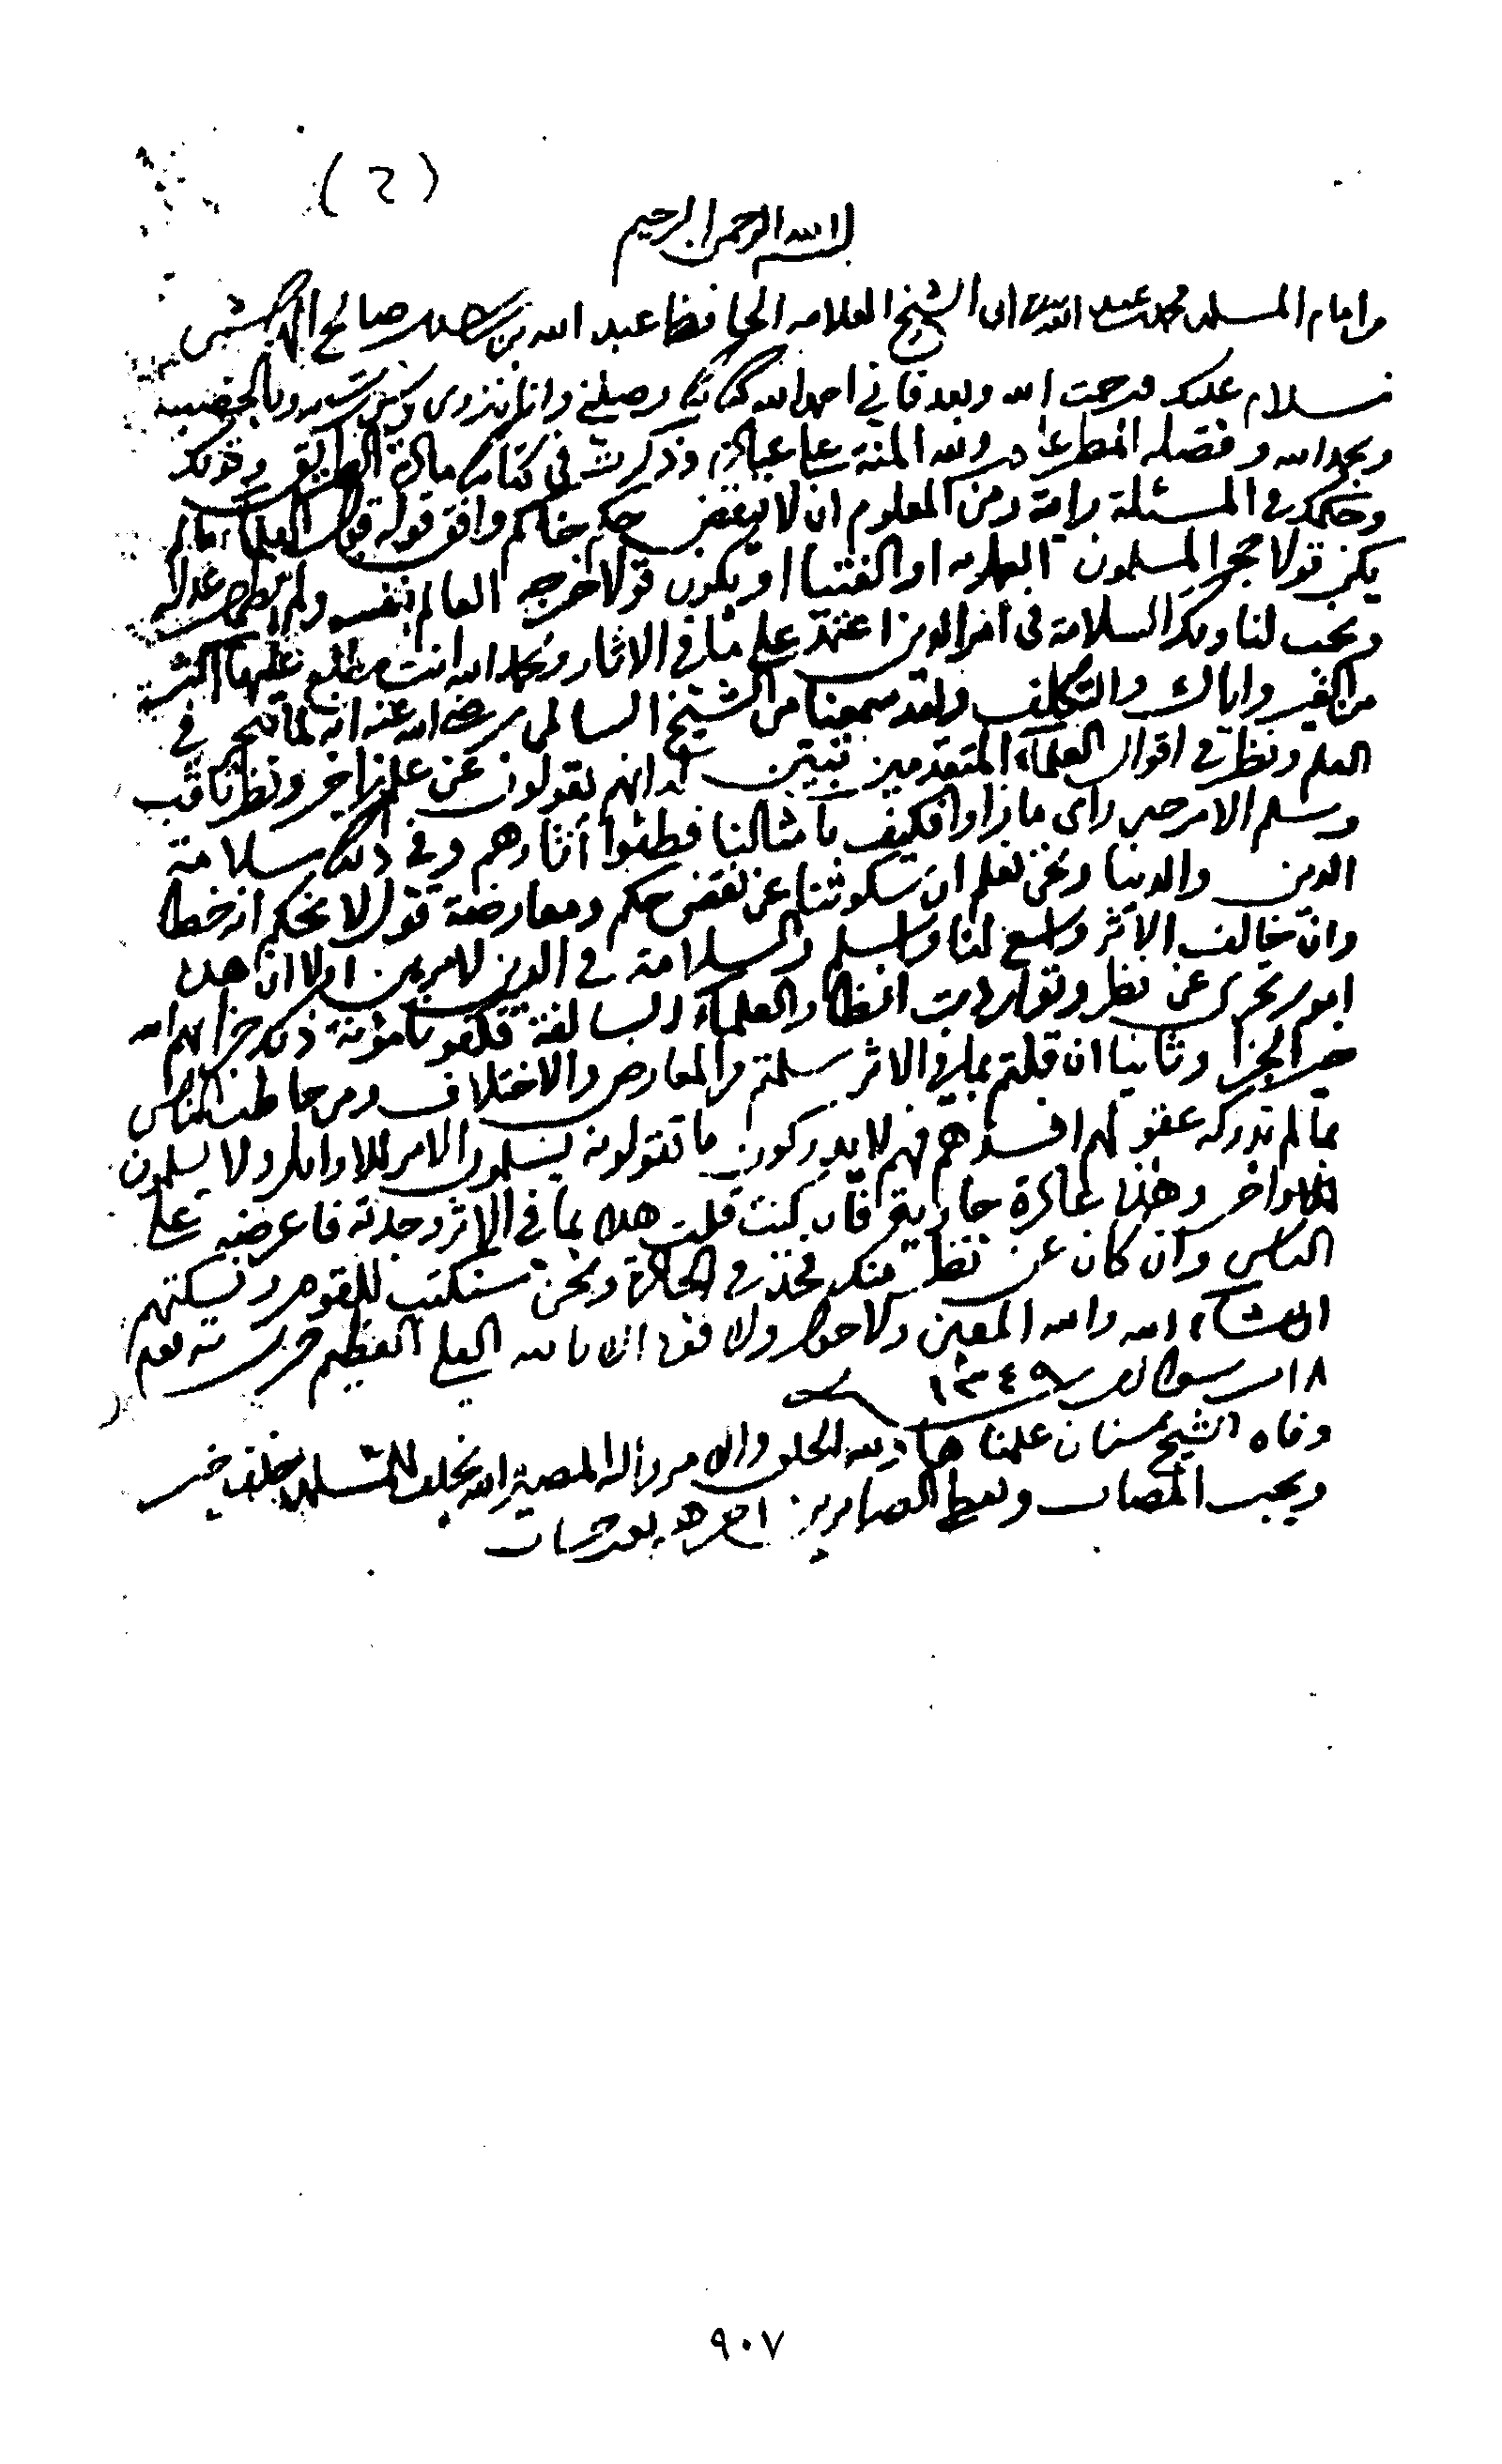 (٦)
بسم الله الرحمن الرحيم
من امام المسلمين محمد بن عبد الله الى الشيخ العلامه الحافظ عبد الله بن صالح
سلام عليك ورحمت الله وبعد فاني احمد الله كتابك وصلني وانا بنزوى وبالجضبيه
وبحمد الله وفضله المطر ولله المنة على عباده وذكرت في كتابك مادة الطريق وقولك
وحكمك في المسئلة ومن المعلوم ان لا ينقض حكم حاكم وافق قوله قول العلماء مالم
يكن قولا هجر المسلمون العمل به او الفتيا او يكون قولا خرجه العالم بنفسه ولم تظهر عدالته
ويجب لنا ولك السلامة في امر الدين اعتمد على ما في الاثار وبحمد الله انت مطلع عليها اكثر
من الغير واياك والتكلف ولقد سمعنا من الشيخ السالمي رضي الله عنه انه لما تبحر في
العلم ونظر في اقوال العلماء المتقدمين تبين له انهم يقولون عن علم زاخر ونظر ثاقب
وسلم الامر حين راى ما راوا فكيف بامثالنا فطئوا آثارهم وفي ذلك سلامة
الدين والدنيا ونحن نعلم ان سكوتنا عن نقض حكم ومعارضة قول لا نحكم انه خطا
وان خالف الاثر واسع لنا واسلم والسلامة في الدين لامرين اولا ان هذه
امور تجرى عن نظر وتواردت انظار العلماء السالفة فكفونا مؤنة ذلك جزاهم الله
خير الجزا وثانيا ان قلتم بما في الاثر سلمتم من المعارض والاختلاف ومن خاطب الناس
بما لم تدركه عقولهم افسدهم فهم لا يدركون ما تقولونه يسلمون الامر للاوائل ولا يسلمون
للاواخر وهذه عادة جارية فان كنت قلت هذا بما في الاثر وجدته فاعرضه على
الناس وان كان عن نظر منك فخذ في الجادة ونحن سنكتب للقوم ونسكتهم
ان شاء الله والله المعين ولا حول ولا قوة الا بالله العلي العظيم
١٨ من شوال ١٣٤٩
وفاه الشيخ سنان علمنا ها ولله الخلق والامر واليه المصير الله يخلف للمسلمين خلف خير
ويجبر المصاب ويعطي الصابرين اجرهم بغير حساب
٩٠٧